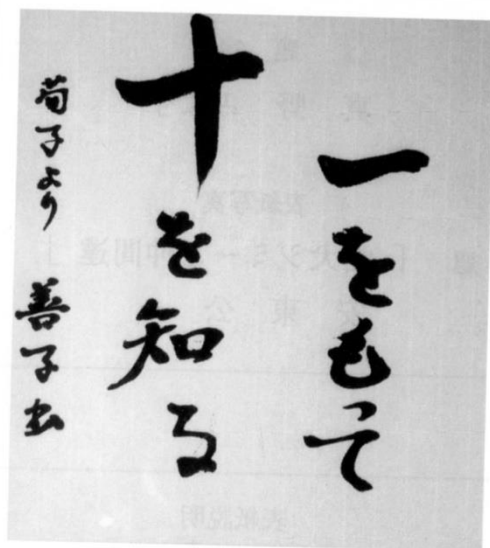 一をもって
十を知る
荀子より 善子书